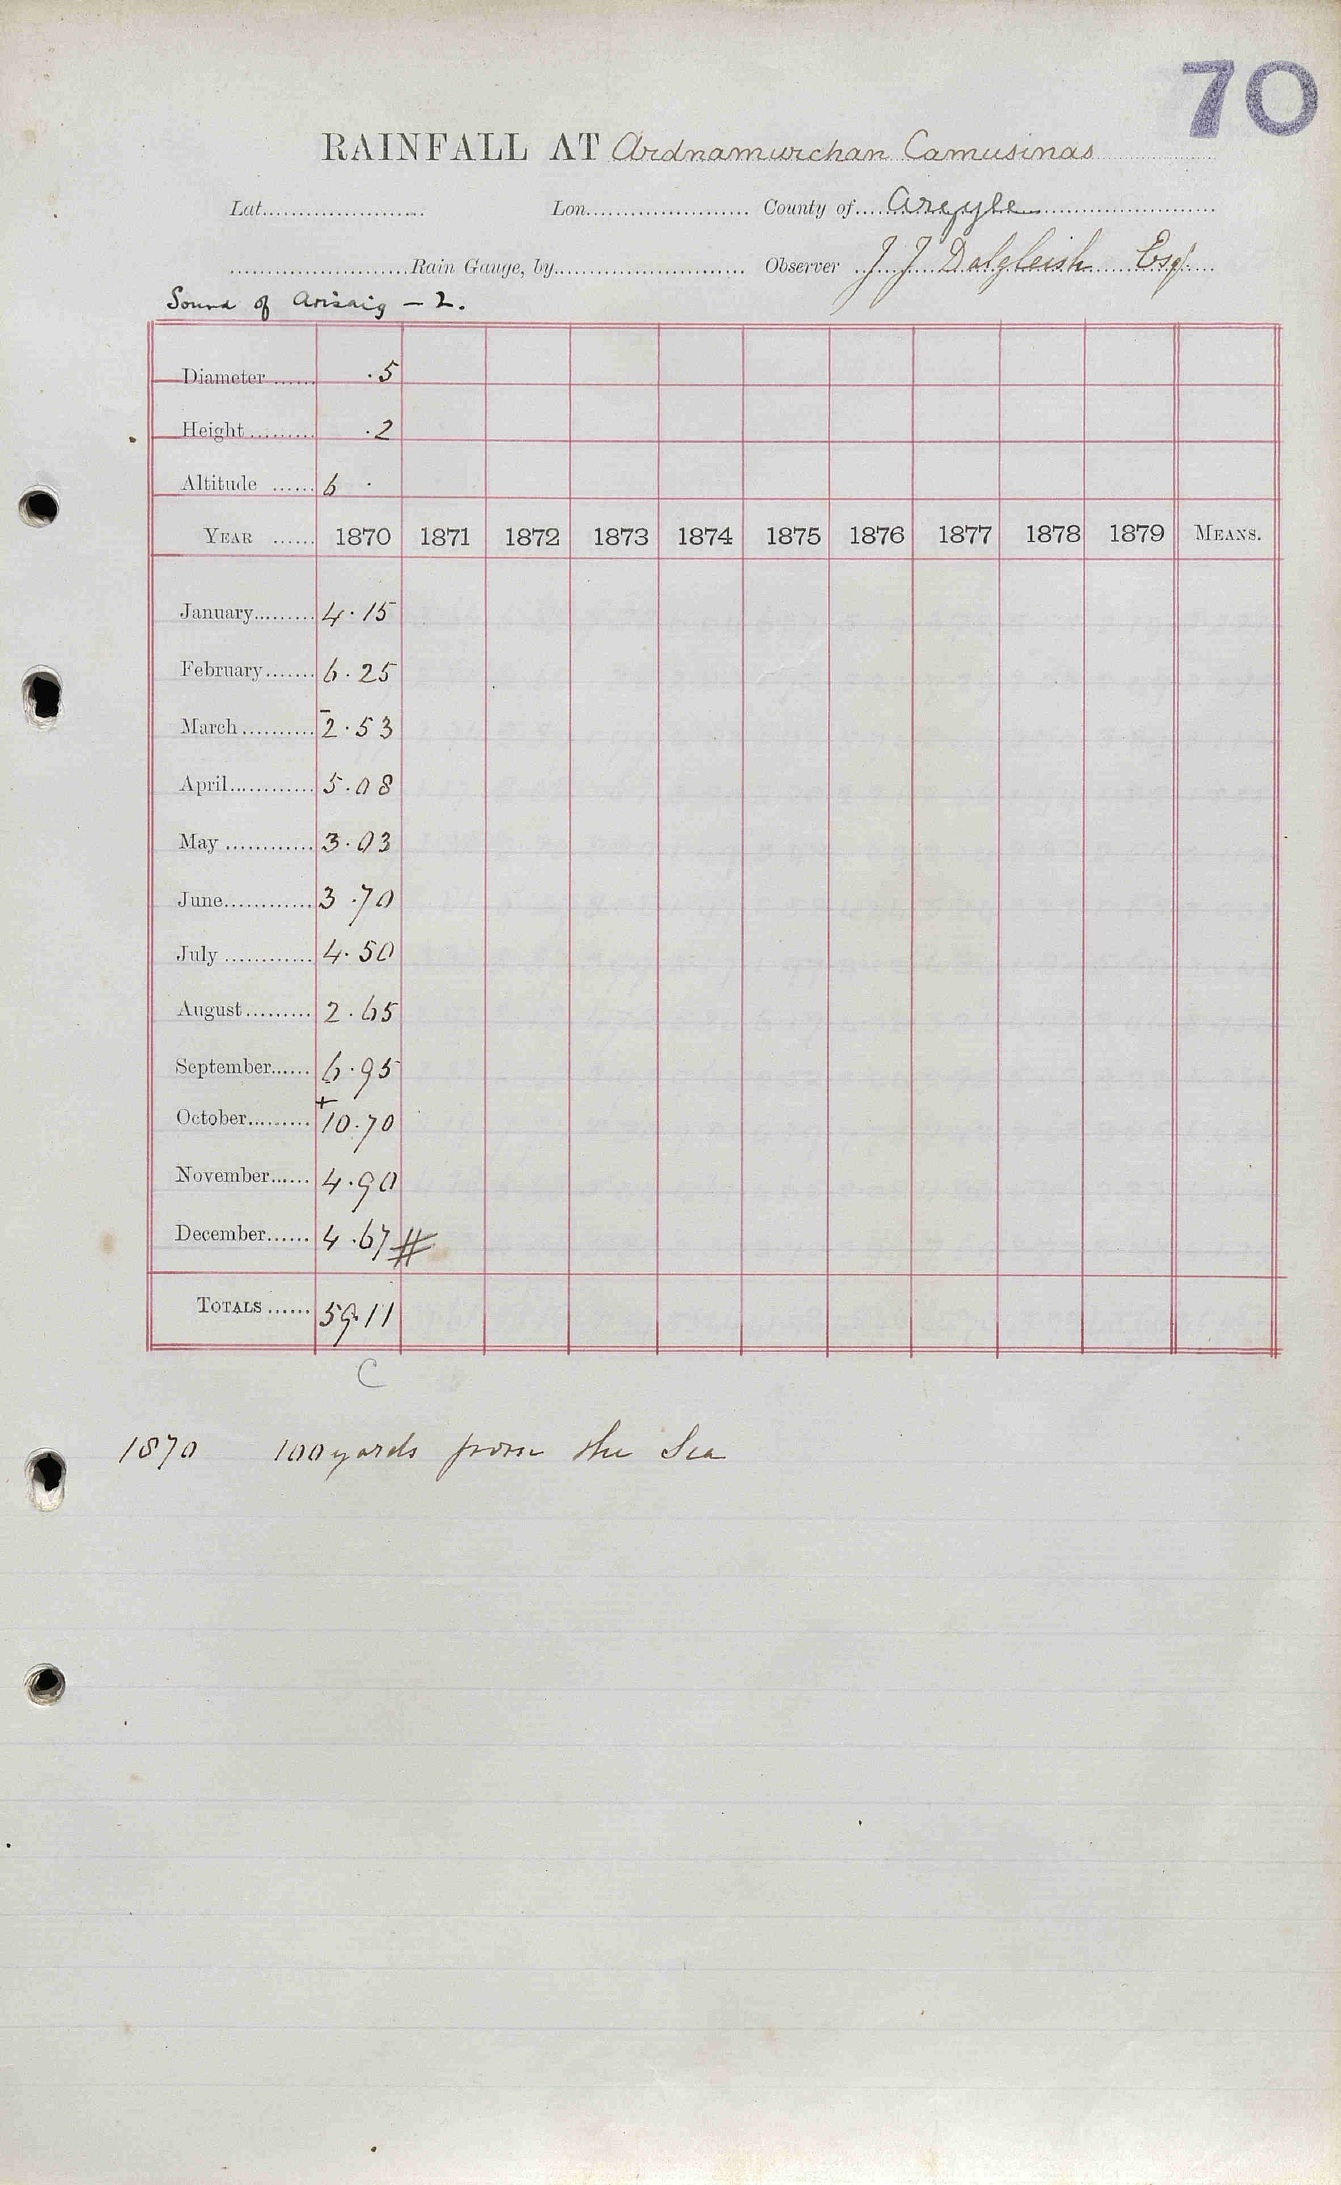 70
RAINFALL AT Ardnamurchan Camusinas
Lat. Lon. County of Argyle
Rain Gauge, by Observer J J Dalgleish Esq.
Sound of Arisaig — 2.
Diameter ...... .5
Height ......... .2
Altitude ...... 6 .
YEAR ...... 1870 1871 1872 1873 1874 1875 1876 1877 1878 1879 MEANS.
January......... 4.15
February....... 6.25
March.......... 2.53
April............ 5.08
May ............ 3.03
June............ 3.70
July ............ 4.50
August......... 2.65
September...... 6.95
October......... + 10.70
November...... 4.90
December...... 4.67 #
TOTALS ...... 59.11
C
1870 100 yards from the Sea